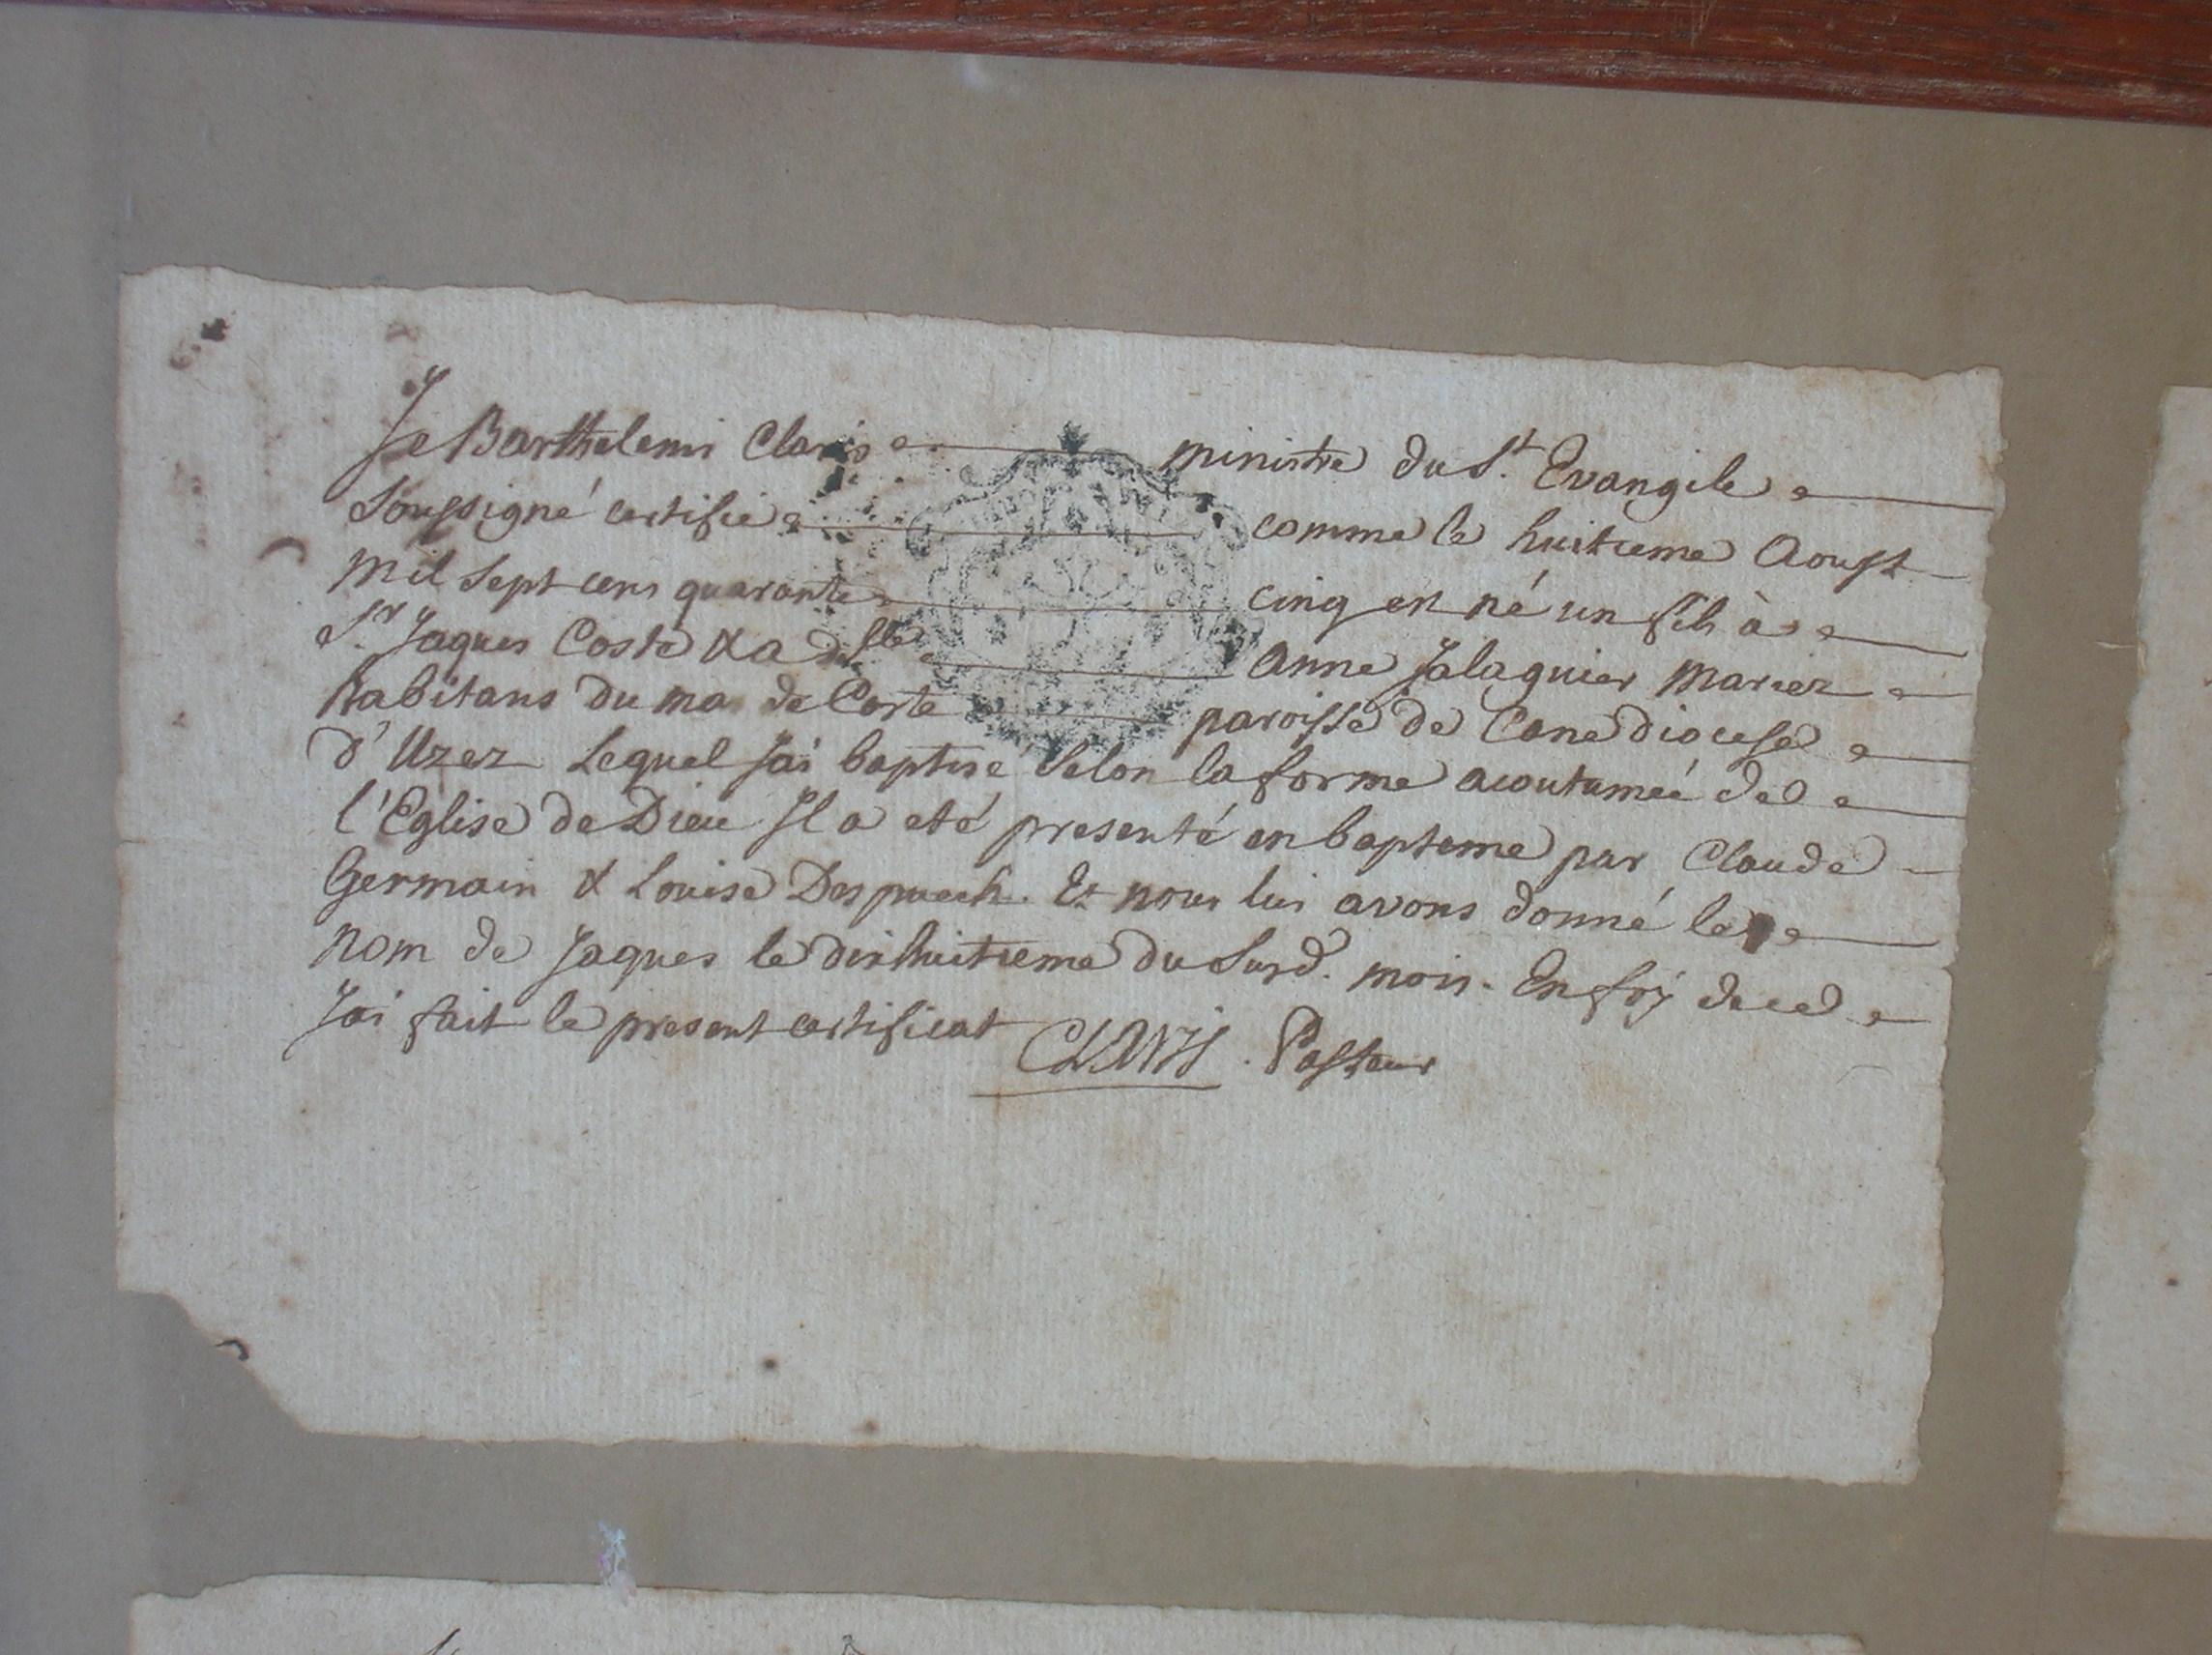 Je Barthelemi Claris ministre du St. Evangile
Soussigné certifie comme le huitieme Aoust
mil sept cens quarante cinq est né un fils à
Sr. Jaques Coste & a dlle Anne Jalaguier mariez
habitans du mas de Coste paroisse de Cane diocese
d'Uzez Lequel J'ai baptisé selon la forme acoutumée de
l'Eglise de Dieu Il a eté presenté en bapteme par Claude
Germain & Louise Despuech. Et nous lui avons donné le
nom de Jaques le dixhuitieme du Susd. mois. En foÿ de ce
J'ai fait le present certificat CLARIS. Pasteur